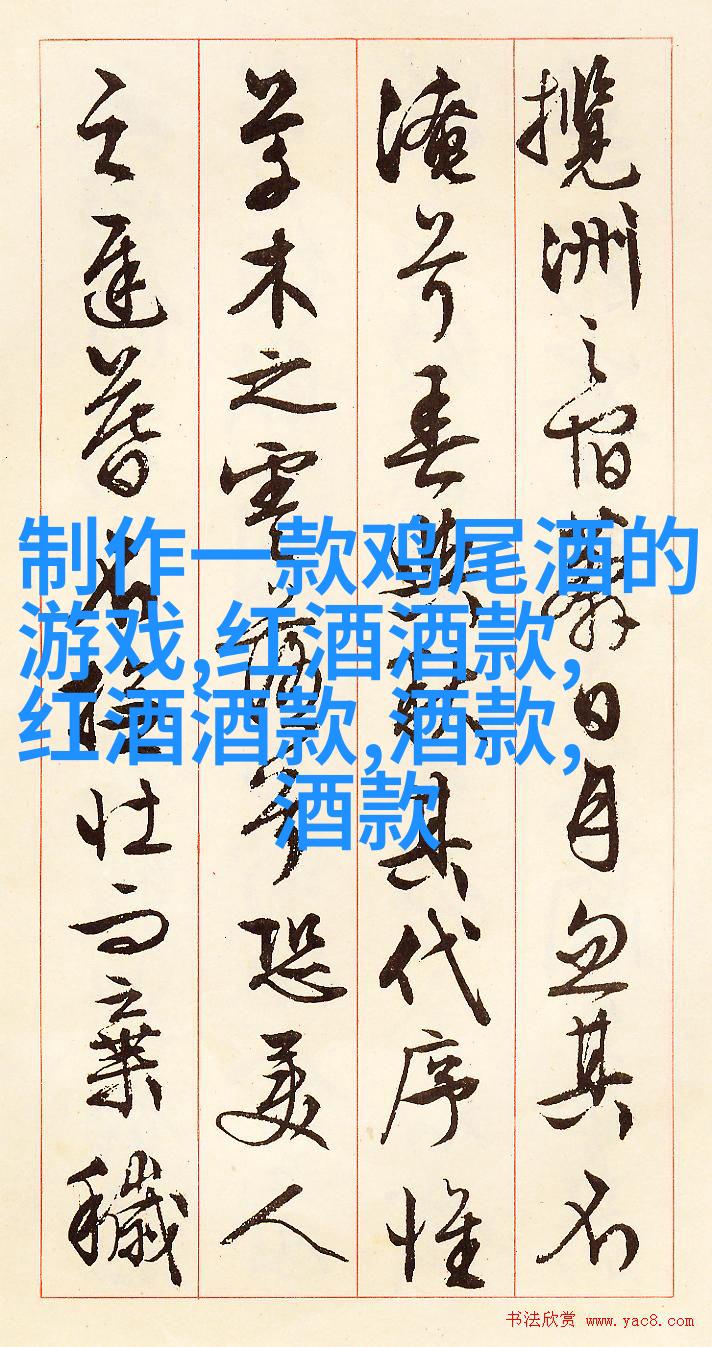 攬洲之宿莽日月忽其不
淹兮春與秋其代序惟
草木之零落兮恐美人
之遲暮不撫壯而棄穢
制作一款鸡尾酒的
游戏,红酒酒款,
红酒酒款,酒款,
酒款
书法欣赏 www.yac8.com